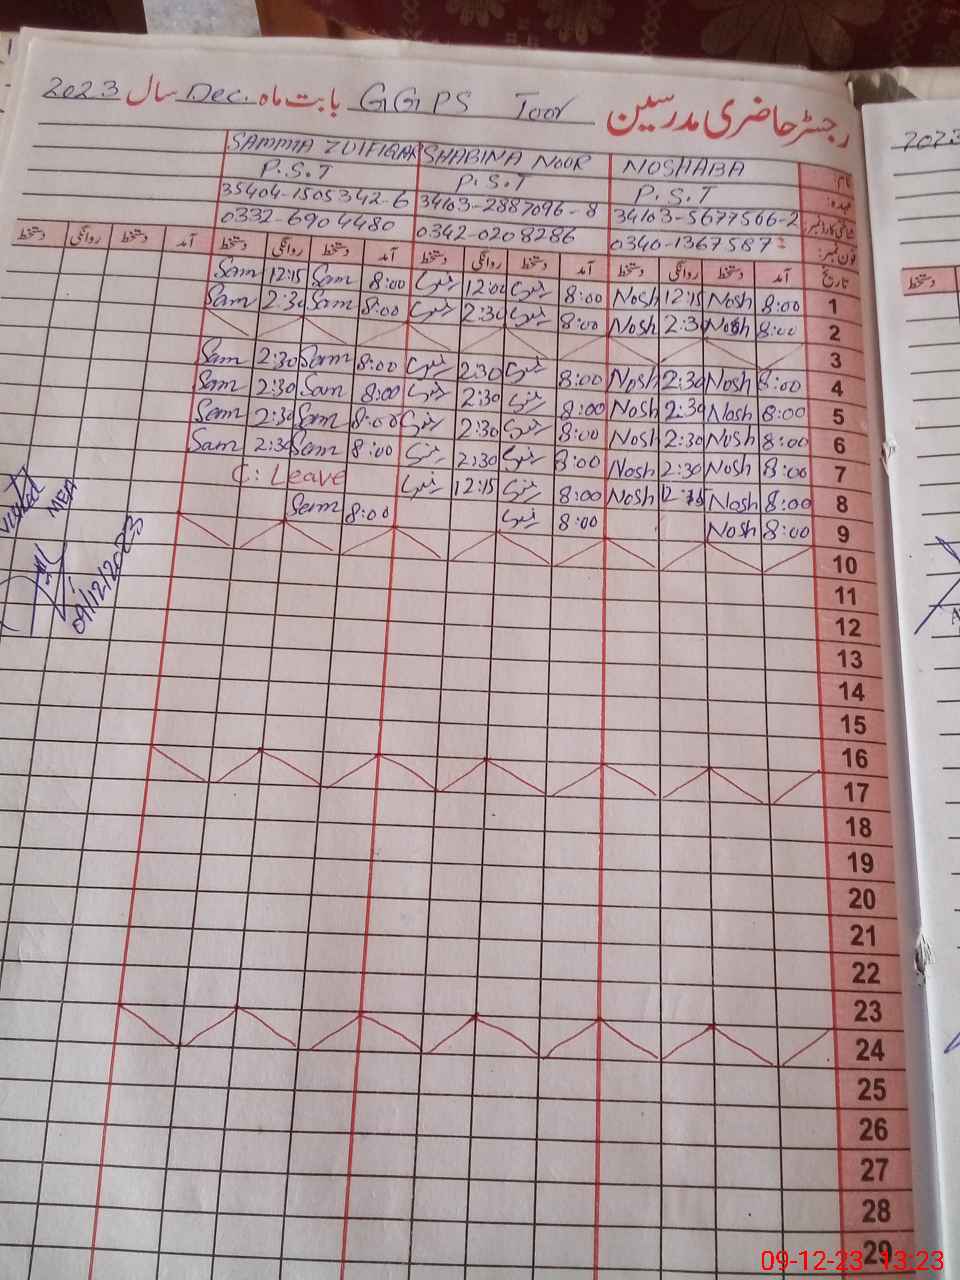 رجسٹر حاضری مدرسین GGPS Toor بابت ماہ Dec. سال 2023
نام: NOSHABA SHABINA NOOR SAMMA ZULFIQAR
عہدہ: P.S.T P.S.T P.S.T
شناختی کارڈ نمبر: 34103-5677566-2 34103-2887096-8 35404-1505342-6
فون نمبر: 0340-1367587 0342-0208286 0332-6904480
تاریخ آمد دستخط روانگی دستخط آمد دستخط روانگی دستخط آمد دستخط روانگی دستخط آمد دستخط روانگی دستخط
1 8:00 Nosh 12:15 Nosh 8:00 12:00 8:00 Sam 12:15 Sam
2 8:00 Nosh 2:30 Nosh 8:00 2:30 8:00 Sam 2:30 Sam
3
4 8:00 Nosh 2:30 Nosh 8:00 2:30 8:00 Sam 2:30 Sam
5 8:00 Nosh 2:30 Nosh 8:00 2:30 8:00 Sam 2:30 Sam
6 8:00 Nosh 2:30 Nosh 8:00 2:30 8:00 Sam 2:30 Sam
7 8:00 Nosh 2:30 Nosh 8:00 2:30 8:00 Sam 2:30 Sam
8 8:00 Nosh 12:15 Nosh 8:00 12:15 C: Leave
9 8:00 Nosh 8:00 8:00 Sam
10
11
12
13
14
15
16
17
18
19
20
21
22
23
24
25
26
27
28
29
Visited
MEA
09/12/2023
2023
دستخط
09-12-23 13:23